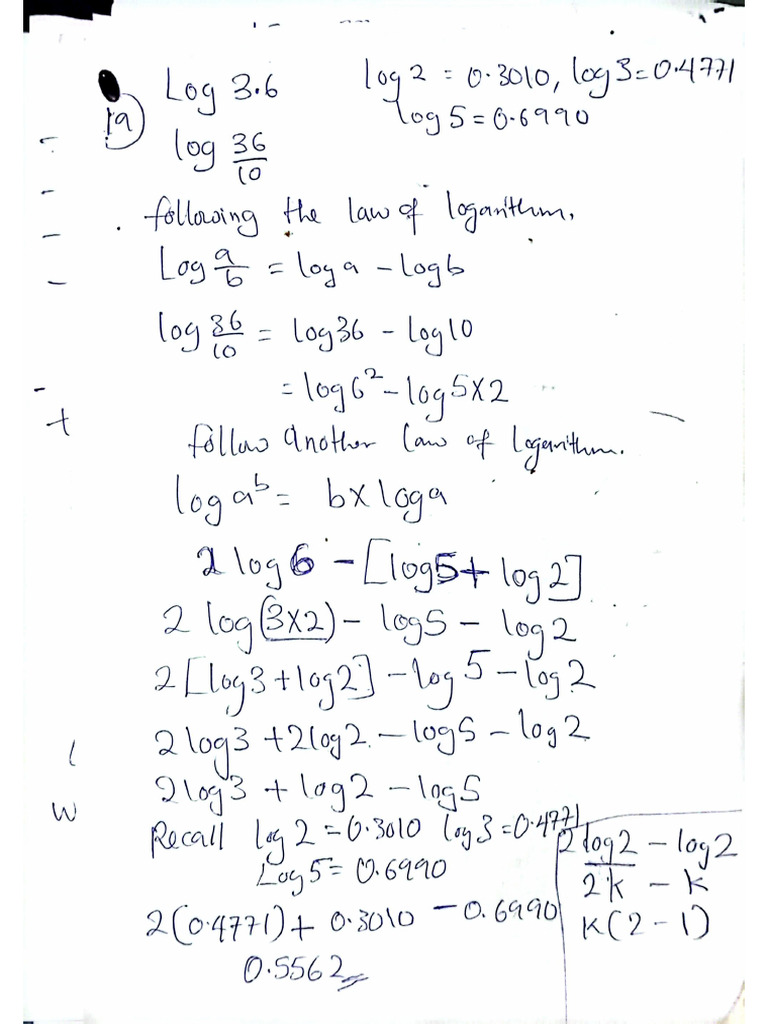 1a) Log 3.6
log 2 = 0.3010, log 3 = 0.4771
log 5 = 0.6990
log 36/10
following the law of logarithm.
Log a/b = log a - log b
log 36/10 = log 36 - log 10
= log 6² - log 5x2
follow another law of logarithm.
log aᵇ = b x log a
2 log 6 - [log 5 + log 2]
2 log (3x2) - log 5 - log 2
2 [log 3 + log 2] - log 5 - log 2
2 log 3 + 2 log 2 - log 5 - log 2
2 log 3 + log 2 - log 5
Recall log 2 = 0.3010 log 3 = 0.4771
Log 5 = 0.6990
2(0.4771) + 0.3010 - 0.6990
0.5562
2 log 2 - log 2
2k - k
k(2 - 1)